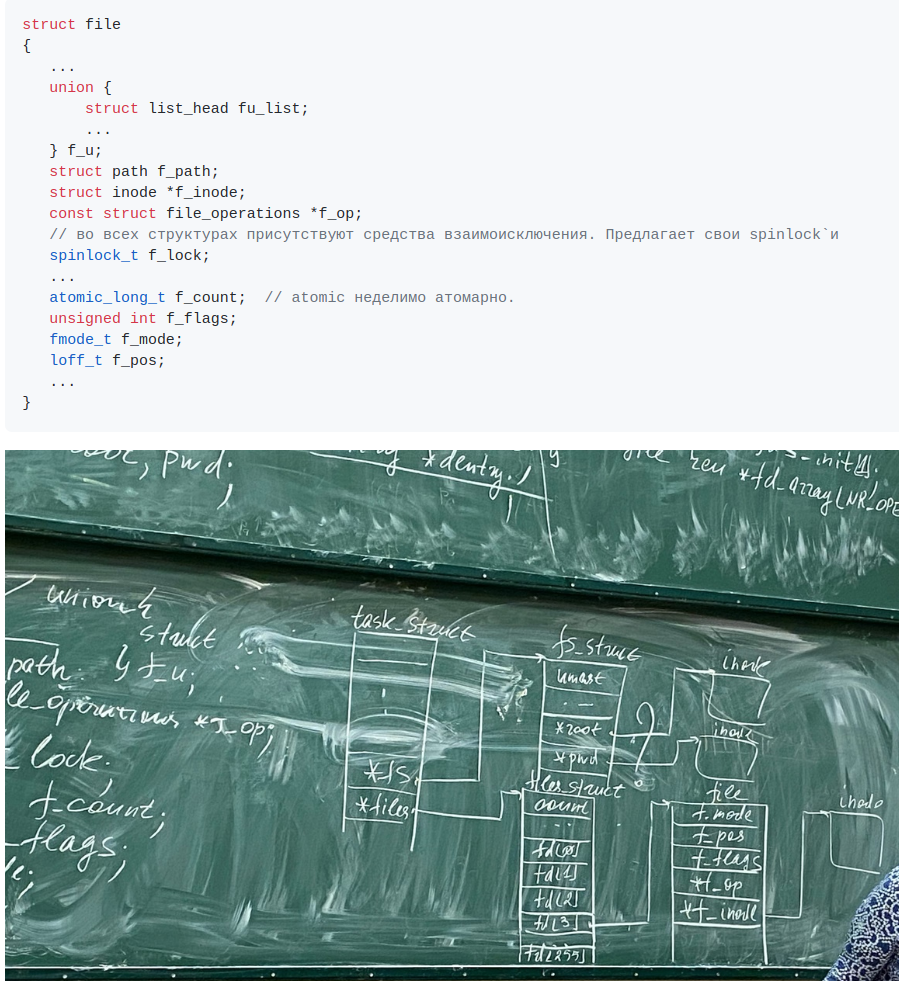 struct file
{
...
union {
struct list_head fu_list;
...
} f_u;
struct path f_path;
struct inode *f_inode;
const struct file_operations *f_op;
// во всех структурах присутствуют средства взаимоисключения. Предлагает свои spinlock`и
spinlock_t f_lock;
...
atomic_long_t f_count;  // atomic неделимо атомарно.
unsigned int f_flags;
fmode_t f_mode;
loff_t f_pos;
...
}
pwd;
*dentry;
*fd_array[NR_OPE
union {
struct
path.
} f_u;
*f_op;
lock.
f_count;
flags;
task_struct
*fs
*files
fs_struct
umask
*root
*pwd
inode
inode
files_struct
count
fd[0]
fd[1]
fd[2]
fd[3]
fd[255]
file
f_mode
f_pos
f_flags
*f_op
*f_inode
inode